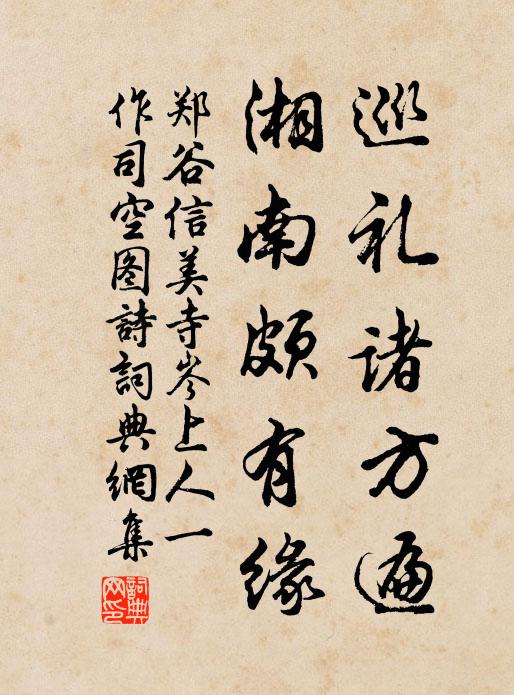 巡礼诸方遍
湘南颇有缘
郑谷信美寺岑上人一
作司空图詩詞典網集
詞典网印